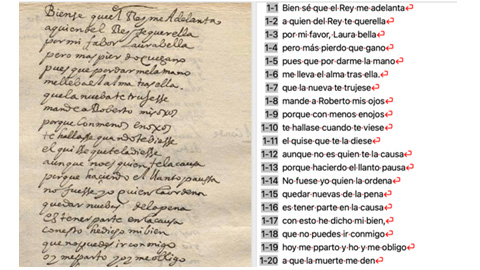 Bien se que el Rey me Adelanta
a quien del Rey te querella
por mi fabor laura bella
pero mas pierdo que gano
pues que por darme la mano
me lleba el alma tras ella.
que la nueba te truxesse
mande a Roberto mis oxos
porque con menos enoxos
te hallasse quando te biesse
el quisse que te la diesse
aunque no es quien te la caussa
porque haciendo el llanto paussa
no fuesse yo quien la ordena
quedar nuebas de la pena
es tener parte en la caussa
con esto he dicho mi bien
que no puedes ir conmigo
oy me parto y oy me obligo
1-1 Bien sé que el Rey me adelanta
1-2 a quien del Rey te querella
1-3 por mi favor, Laura bella
1-4 pero más pierdo que gano
1-5 pues que por darme la mano
1-6 me lleva el alma tras ella.
1-7 que la nueva te trujese
1-8 mande a Roberto mis ojos
1-9 porque con menos enojos
1-10 te hallase cuando te viese
1-11 el quise que te la diese
1-12 aunque no es quien te la causa
1-13 porque hacierdo el llanto pausa
1-14 No fuese yo quien la ordena
1-15 quedar nuevas de la pena
1-16 es tener parte en la causa
1-17 con esto he dicho mi bien,
1-18 que no puedes ir conmigo
1-19 hoy me pparto y ho y me obligo
1-20 a que la muerte me den